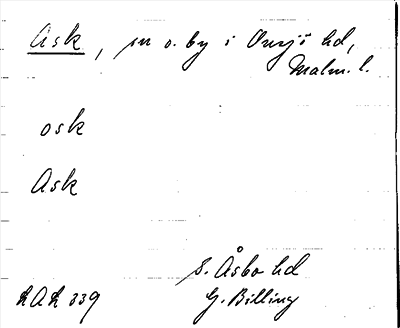 Ask, sn o. by i Onsjö hd,
Malm. l.
osk
Ask
S. Åsbo hd
RAÄ 339 G. Billing